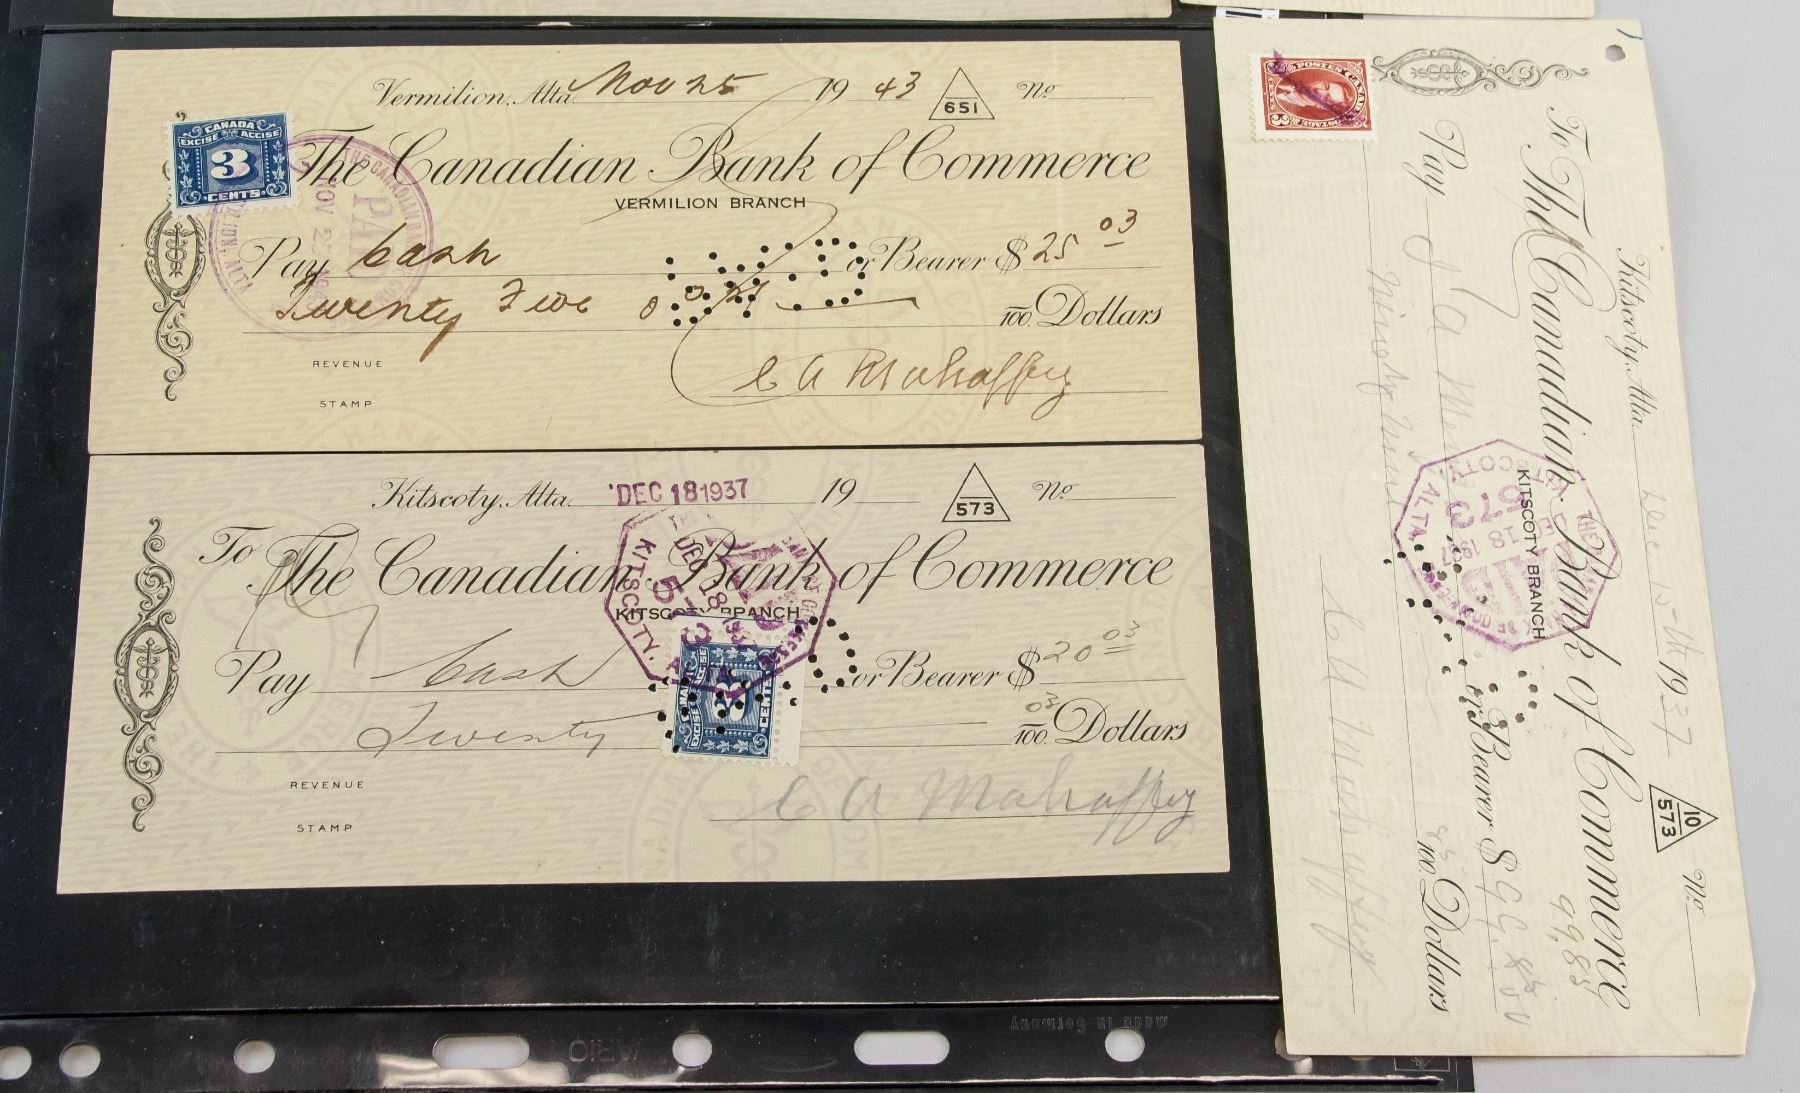 Vermilion, Alta. Nov 25 1943 651 No
CANADA
EXCISE ACCISE
3
CENTS
The Canadian Bank of Commerce
VERMILION BRANCH
PAID
NOV 25
Pay Cash or Bearer $25 03
Twenty Five 03/100 Dollars
REVENUE
STAMP
C A Mahaffey
Kitscoty, Alta. DEC 18 1937 19 573 No
To The Canadian Bank of Commerce
KITSCOTY BRANCH
DEC 18
KITSCOTY, ALTA
Pay Cash or Bearer $20 03
Twenty 03/100 Dollars
CANADA
EXCISE ACCISE
3
CENTS
REVENUE
STAMP
C A Mahaffey
Kitscoty, Alta. Dec 15th 1937 10 573 No
POSTES CANADA
3 CENTS POSTAGE 3
To The Canadian Bank of Commerce
KITSCOTY BRANCH
KITSCOTY ALTA.
573
18 1937
99.85
Pay or Bearer $ 99.85
Ninety Nine 85/100 Dollars
C A Mahaffey
made in Germany
VARIO